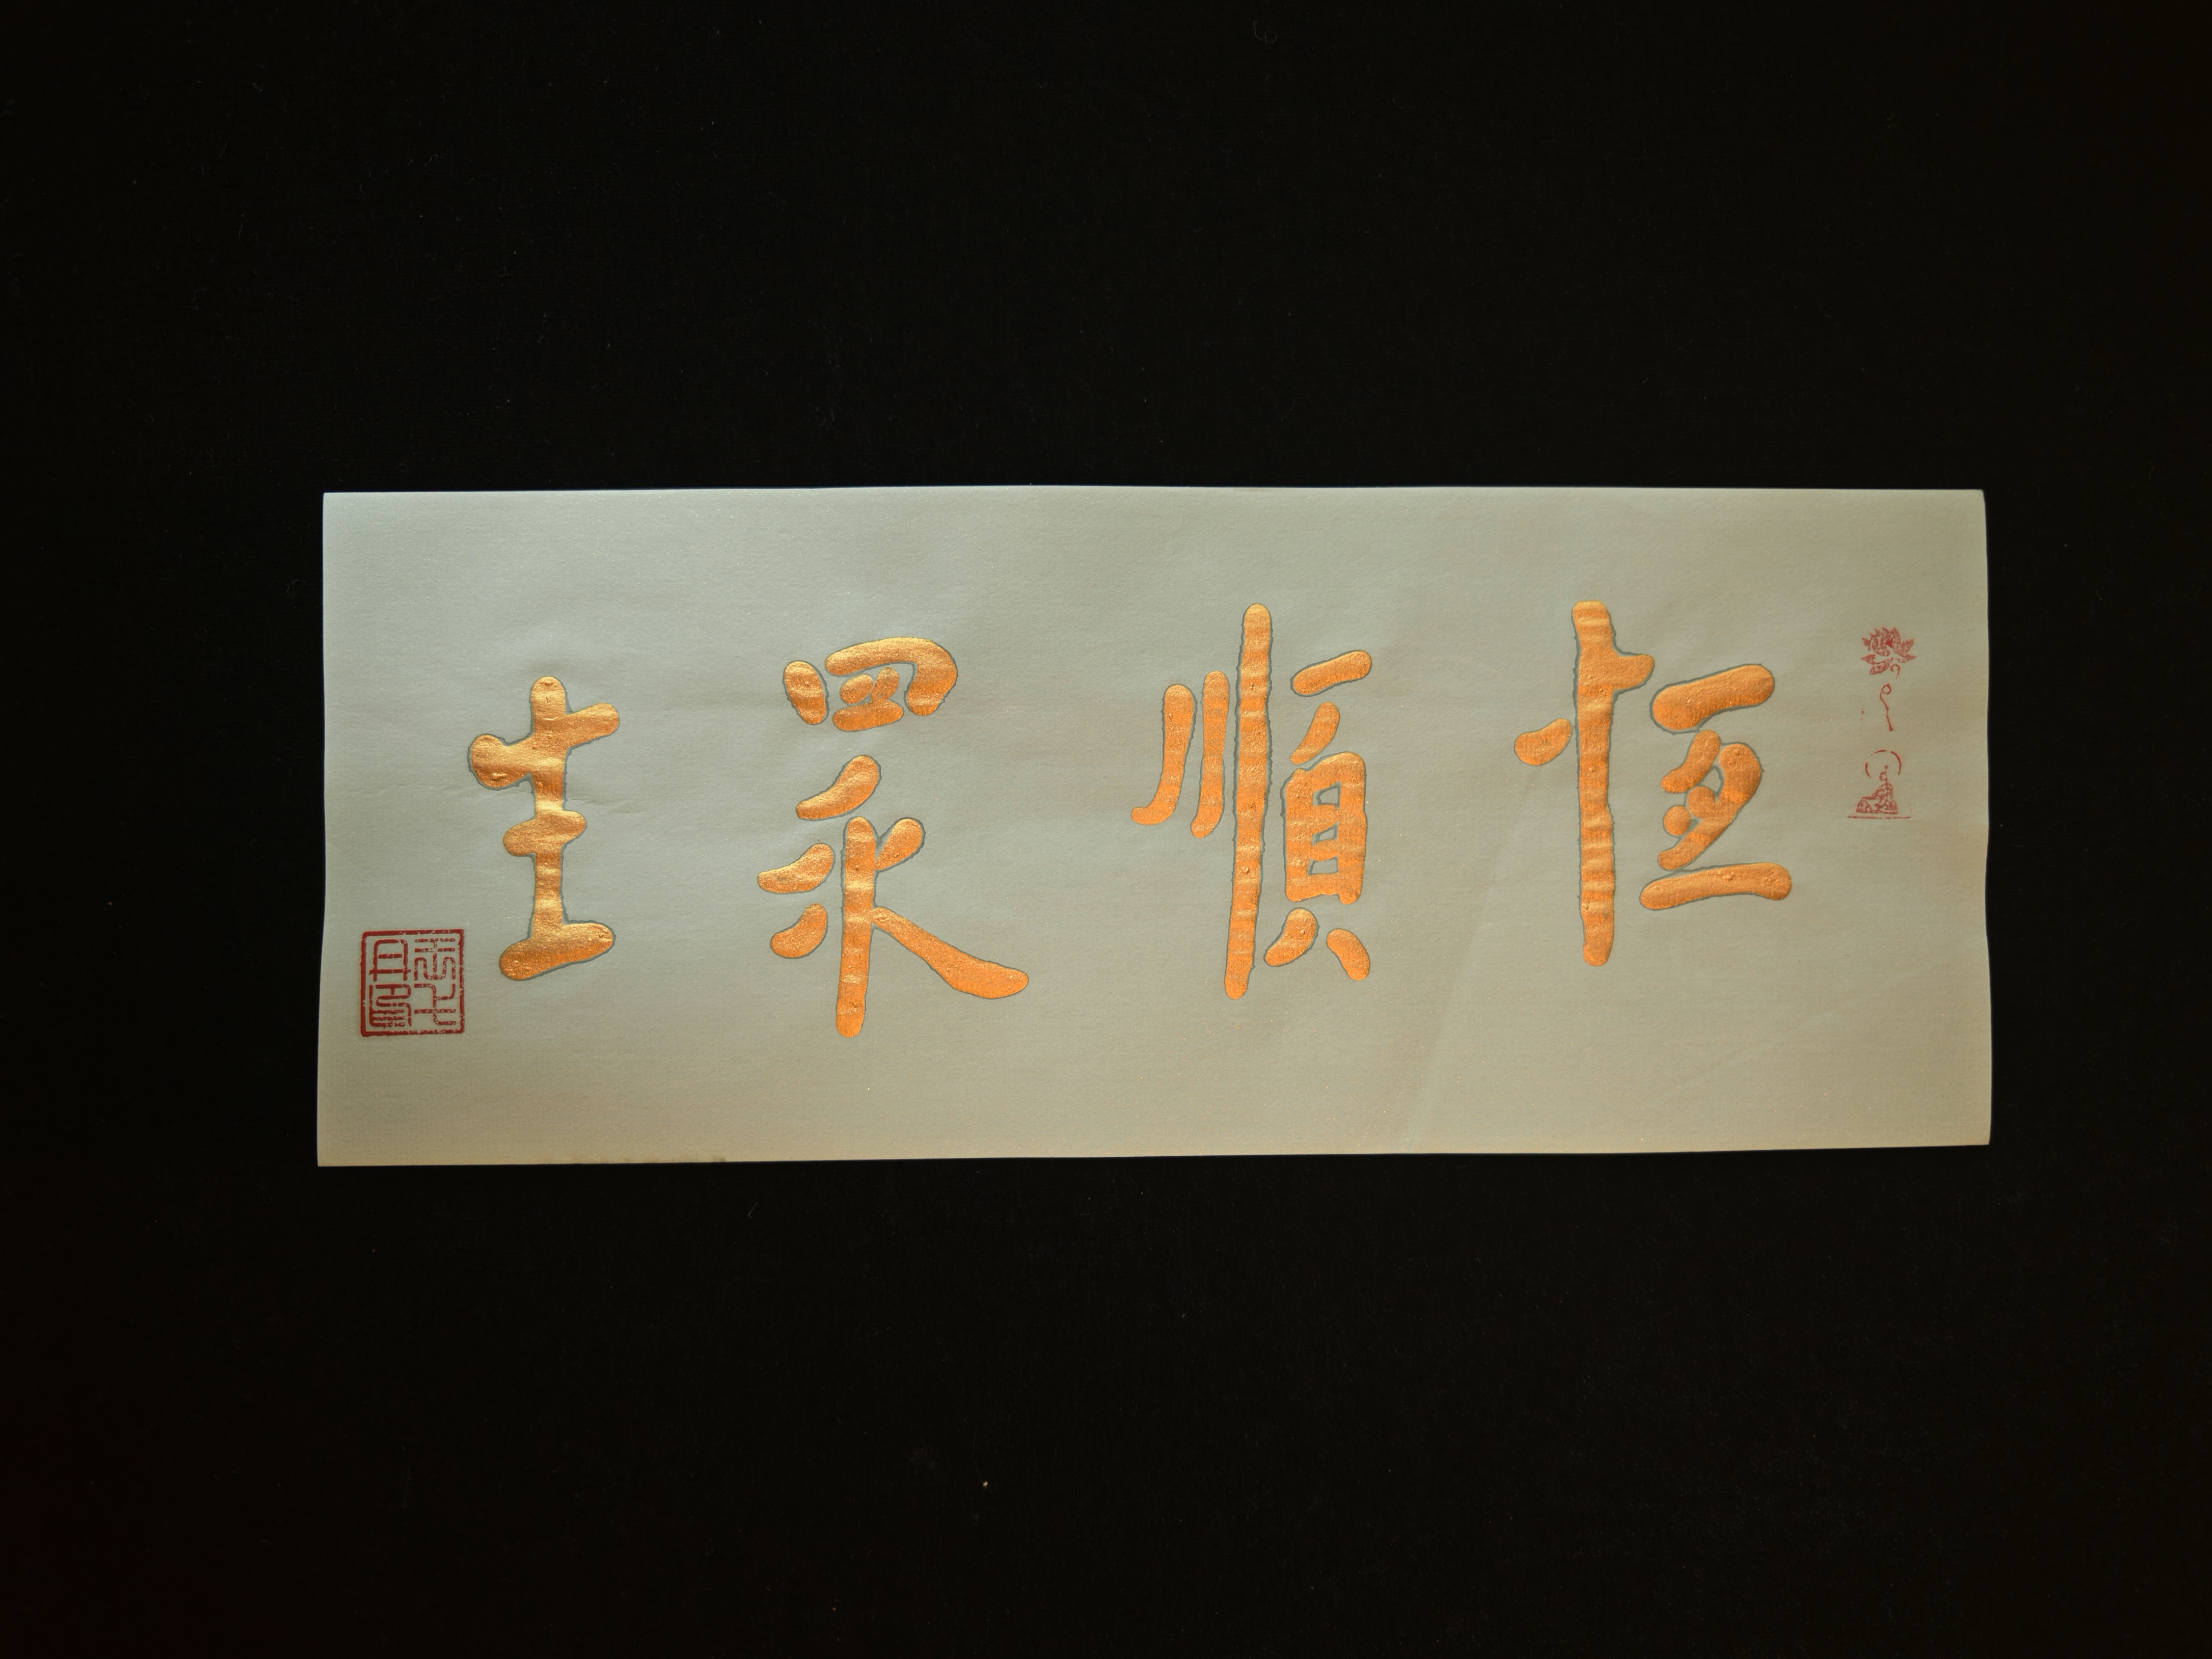 恒順眾生